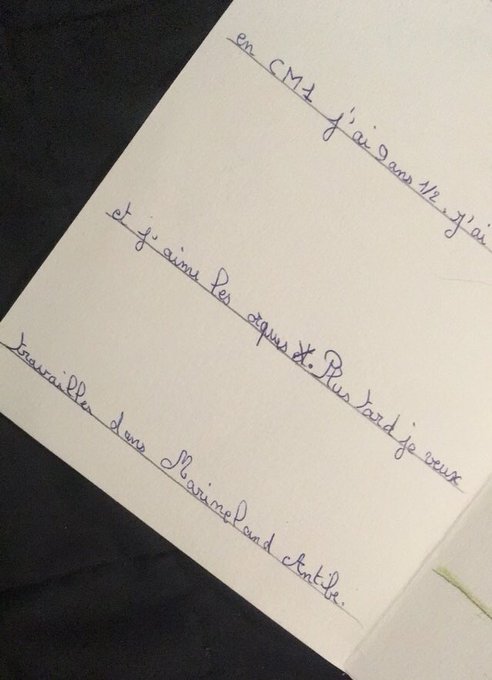 en CM1 j'ai 9 ans 1/2. j'ai
et j'aime les orques. Plus tard je veux
travailler dans Marineland Antibe.